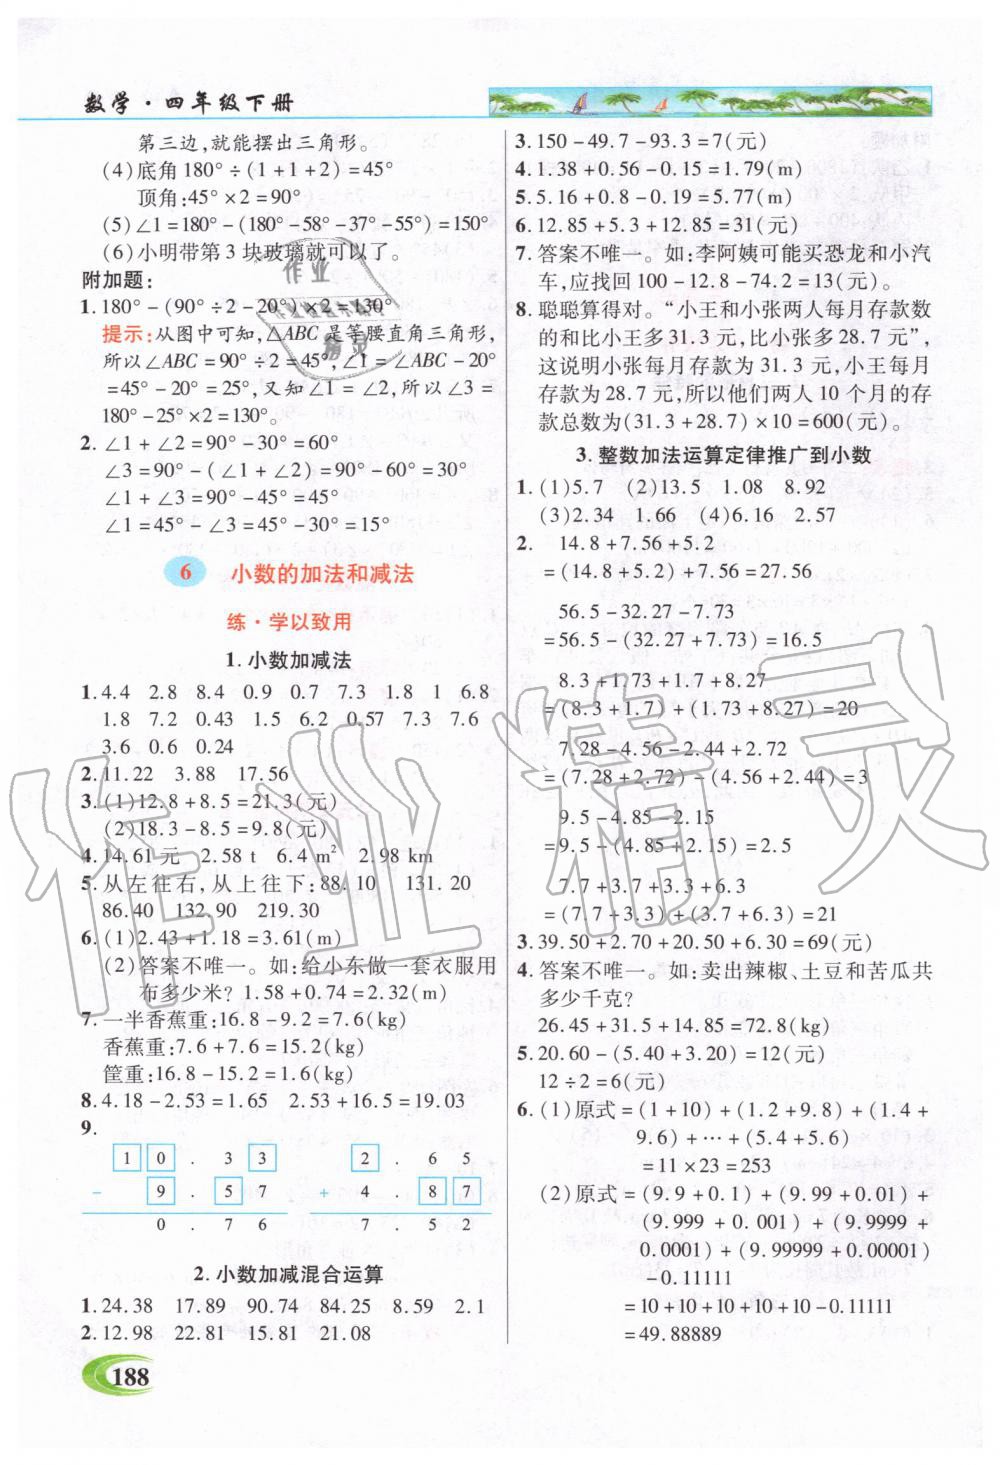 数学·四年级下册
第三边,就能摆出三角形。
(4)底角180°÷(1+1+2)=45°
顶角:45°×2=90°
(5)∠1=180°-(180°-58°-37°-55°)=150°
(6)小明带第3块玻璃就可以了。
附加题:
1.180°-(90°÷2-20°)×2=130°
提示:从图中可知,△ABC是等腰直角三角形,
所以∠ABC=90°÷2=45°,∠1=∠ABC-20°
=45°-20°=25°,又知∠1=∠2,所以∠3=
180°-25°×2=130°。
2.∠1+∠2=90°-30°=60°
∠3=90°-(∠1+∠2)=90°-60°=30°
∠1+∠3=90°-45°=45°
∠1=45°-∠3=45°-30°=15°
6 小数的加法和减法
练·学以致用
1.小数加减法
1.4.4 2.8 8.4 0.9 0.7 7.3 1.8 1 6.8
1.8 7.2 0.43 1.5 6.2 0.57 7.3 7.6
3.6 0.6 0.24
2.11.22 3.88 17.56
3.(1)12.8+8.5=21.3(元)
(2)18.3-8.5=9.8(元)
4.14.61元 2.58 t 6.4 m² 2.98 km
5.从左往右,从上往下:88.10 131.20
86.40 132.90 219.30
6.(1)2.43+1.18=3.61(m)
(2)答案不唯一。如:给小东做一套衣服用
布多少米?1.58+0.74=2.32(m)
7.一半香蕉重:16.8-9.2=7.6(kg)
香蕉重:7.6+7.6=15.2(kg)
筐重:16.8-15.2=1.6(kg)
8.4.18-2.53=1.65 2.53+16.5=19.03
9.
1 0 . 3 3
- 9 . 5 7
0 . 7 6
2 . 6 5
+ 4 . 8 7
7 . 5 2
2.小数加减混合运算
1.24.38 17.89 90.74 84.25 8.59 2.1
2.12.98 22.81 15.81 21.08
188
3.150-49.7-93.3=7(元)
4.1.38+0.56-0.15=1.79(m)
5.5.16+0.8-0.19=5.77(m)
6.12.85+5.3+12.85=31(元)
7.答案不唯一。如:李阿姨可能买恐龙和小汽
车,应找回100-12.8-74.2=13(元)
8.聪聪算得对。“小王和小张两人每月存款数
的和比小王多31.3元,比小张多28.7元”,
这说明小张每月存款为31.3元,小王每月
存款为28.7元,所以他们两人10个月的存
款总数为(31.3+28.7)×10=600(元)。
3.整数加法运算定律推广到小数
1.(1)5.7 (2)13.5 1.08 8.92
(3)2.34 1.66 (4)6.16 2.57
2. 14.8+7.56+5.2
=(14.8+5.2)+7.56=27.56
56.5-32.27-7.73
=56.5-(32.27+7.73)=16.5
8.3+1.73+1.7+8.27
=(8.3+1.7)+(1.73+8.27)=20
7.28-4.56-2.44+2.72
=(7.28+2.72)-(4.56+2.44)=3
9.5-4.85-2.15
=9.5-(4.85+2.15)=2.5
7.7+3.7+3.3+6.3
=(7.7+3.3)+(3.7+6.3)=21
3.39.50+2.70+20.50+6.30=69(元)
4.答案不唯一。如:卖出辣椒、土豆和苦瓜共
多少千克?
26.45+31.5+14.85=72.8(kg)
5.20.60-(5.40+3.20)=12(元)
12÷2=6(元)
6.(1)原式=(1+10)+(1.2+9.8)+(1.4+
9.6)+…+(5.4+5.6)
=11×23=253
(2)原式=(9.9+0.1)+(9.99+0.01)+
(9.999+0.001)+(9.9999+
0.0001)+(9.99999+0.00001)
-0.11111
=10+10+10+10+10-0.11111
=49.88889
作业精灵
作业
精灵